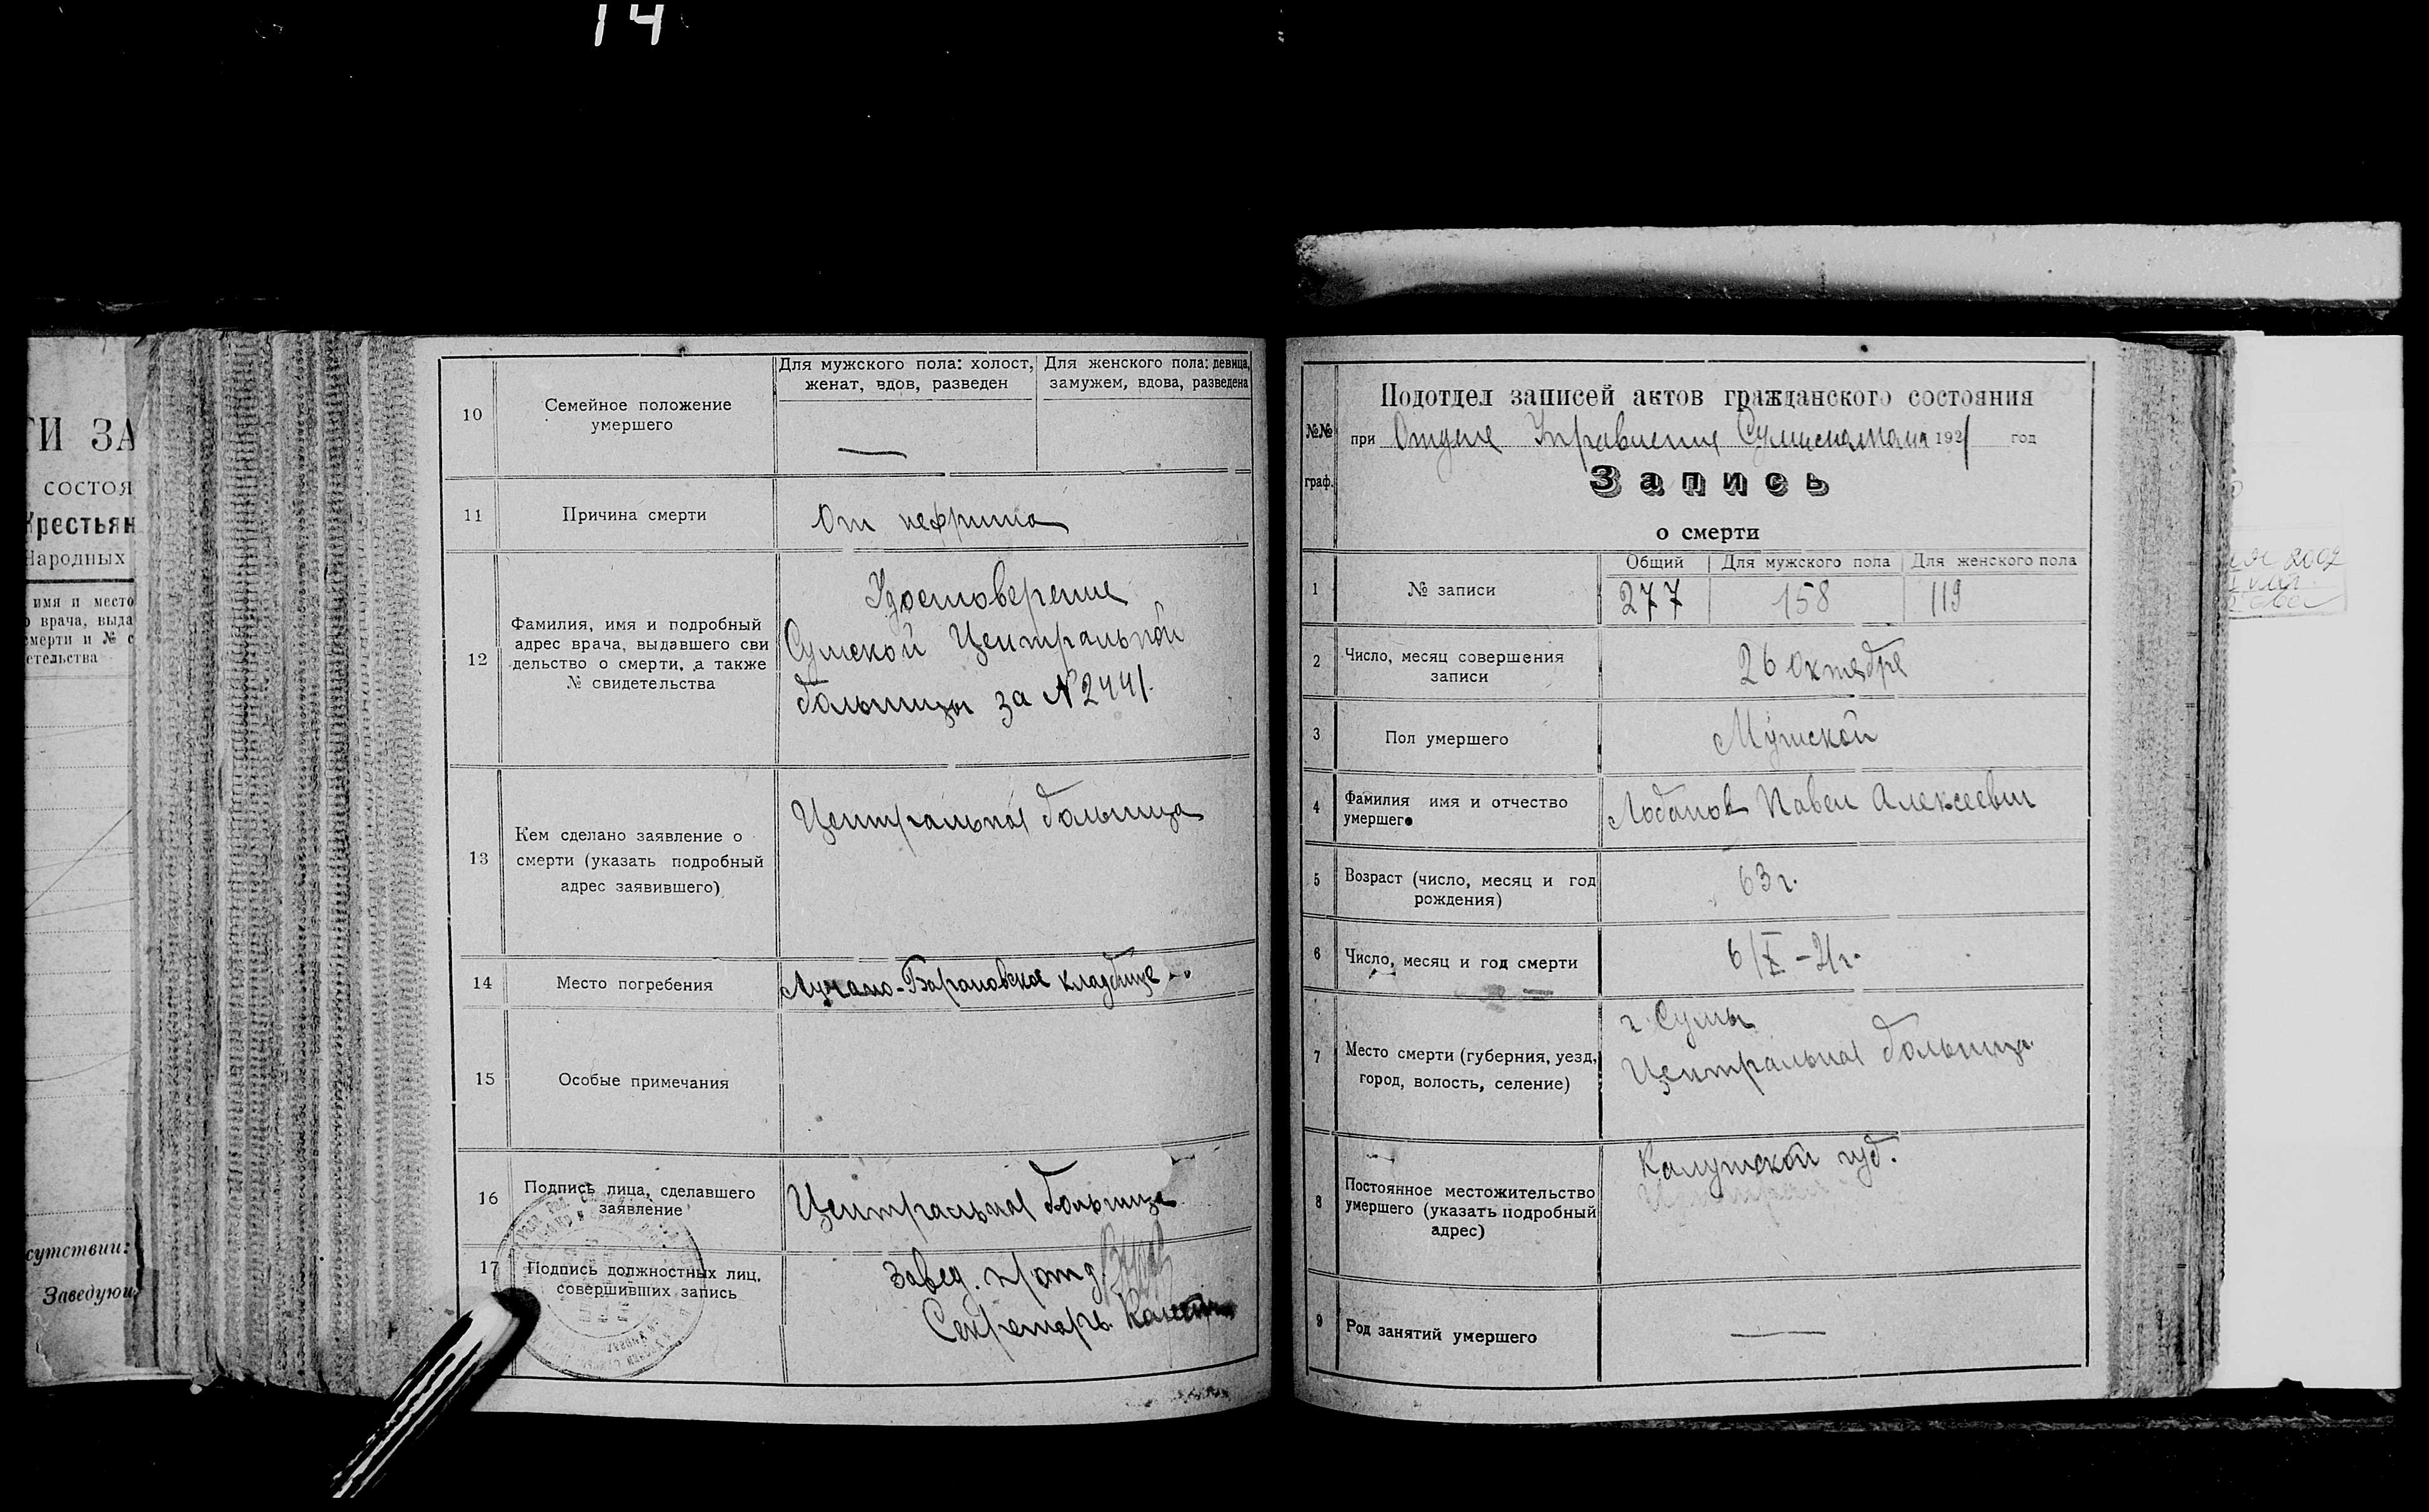 14
ТИ ЗА
состоя
Крестьян
Народных
имя и место
врача, выда
смерти и № с
етельства
сутствии:
Заведующ
10
Семейное положение
умершего
Для мужского пола: холост,
женат, вдов, разведен
Для женского пола: девица,
замужем, вдова, разведена
—
11
Причина смерти
От нефрита
12
Фамилия, имя и подробный
адрес врача, выдавшего сви
дельство о смерти, а также
№ свидетельства
Удостоверение
Сумской Центральной
больницы за N 2441.
13
Кем сделано заявление о
смерти (указать подробный
адрес заявившего)
Центральная больница
14
Место погребения
Барановское кладбище
15
Особые примечания
16
Подпись лица, сделавшего
заявление
Центральная больница
17
Подпись должностных лиц,
совершивших запись
Завед. п/отд
Секретарь
№№
граф.
Подотдел записей актов гражданского состояния
при Отделе Управления 1921 год
Запись
о смерти
1
№ записи
Общий
Для мужского пола
Для женского пола
277
158
119
2
Число, месяц совершения
записи
26 октября
3
Пол умершего
Мужской
4
Фамилия имя и отчество
умершего
Лобанов Павел Алексеевич
5
Возраст (число, месяц и год
рождения)
63 г.
6
Число, месяц и год смерти
6/X – 21г.
7
Место смерти (губерния, уезд,
город, волость, селение)
г. Сумы
Центральная больница
8
Постоянное местожительство
умершего (указать подробный
адрес)
Калужской губ.
9
Род занятий умершего
—